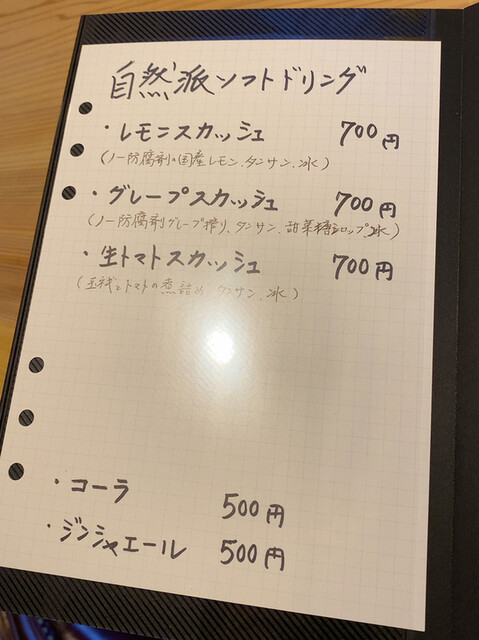 自然派ソフトドリング
・レモンスカッシュ 700円
(ノー防腐剤の国産レモン、タンサン、氷)
・グレープスカッシュ 700円
(ノー防腐剤グレープ搾り、タンサン、甜菜糖シロップ、氷)
・生トマトスカッシュ 700円
(トマトの煮詰め、タンサン、氷)
・コーラ 500円
・ジンジャエール 500円